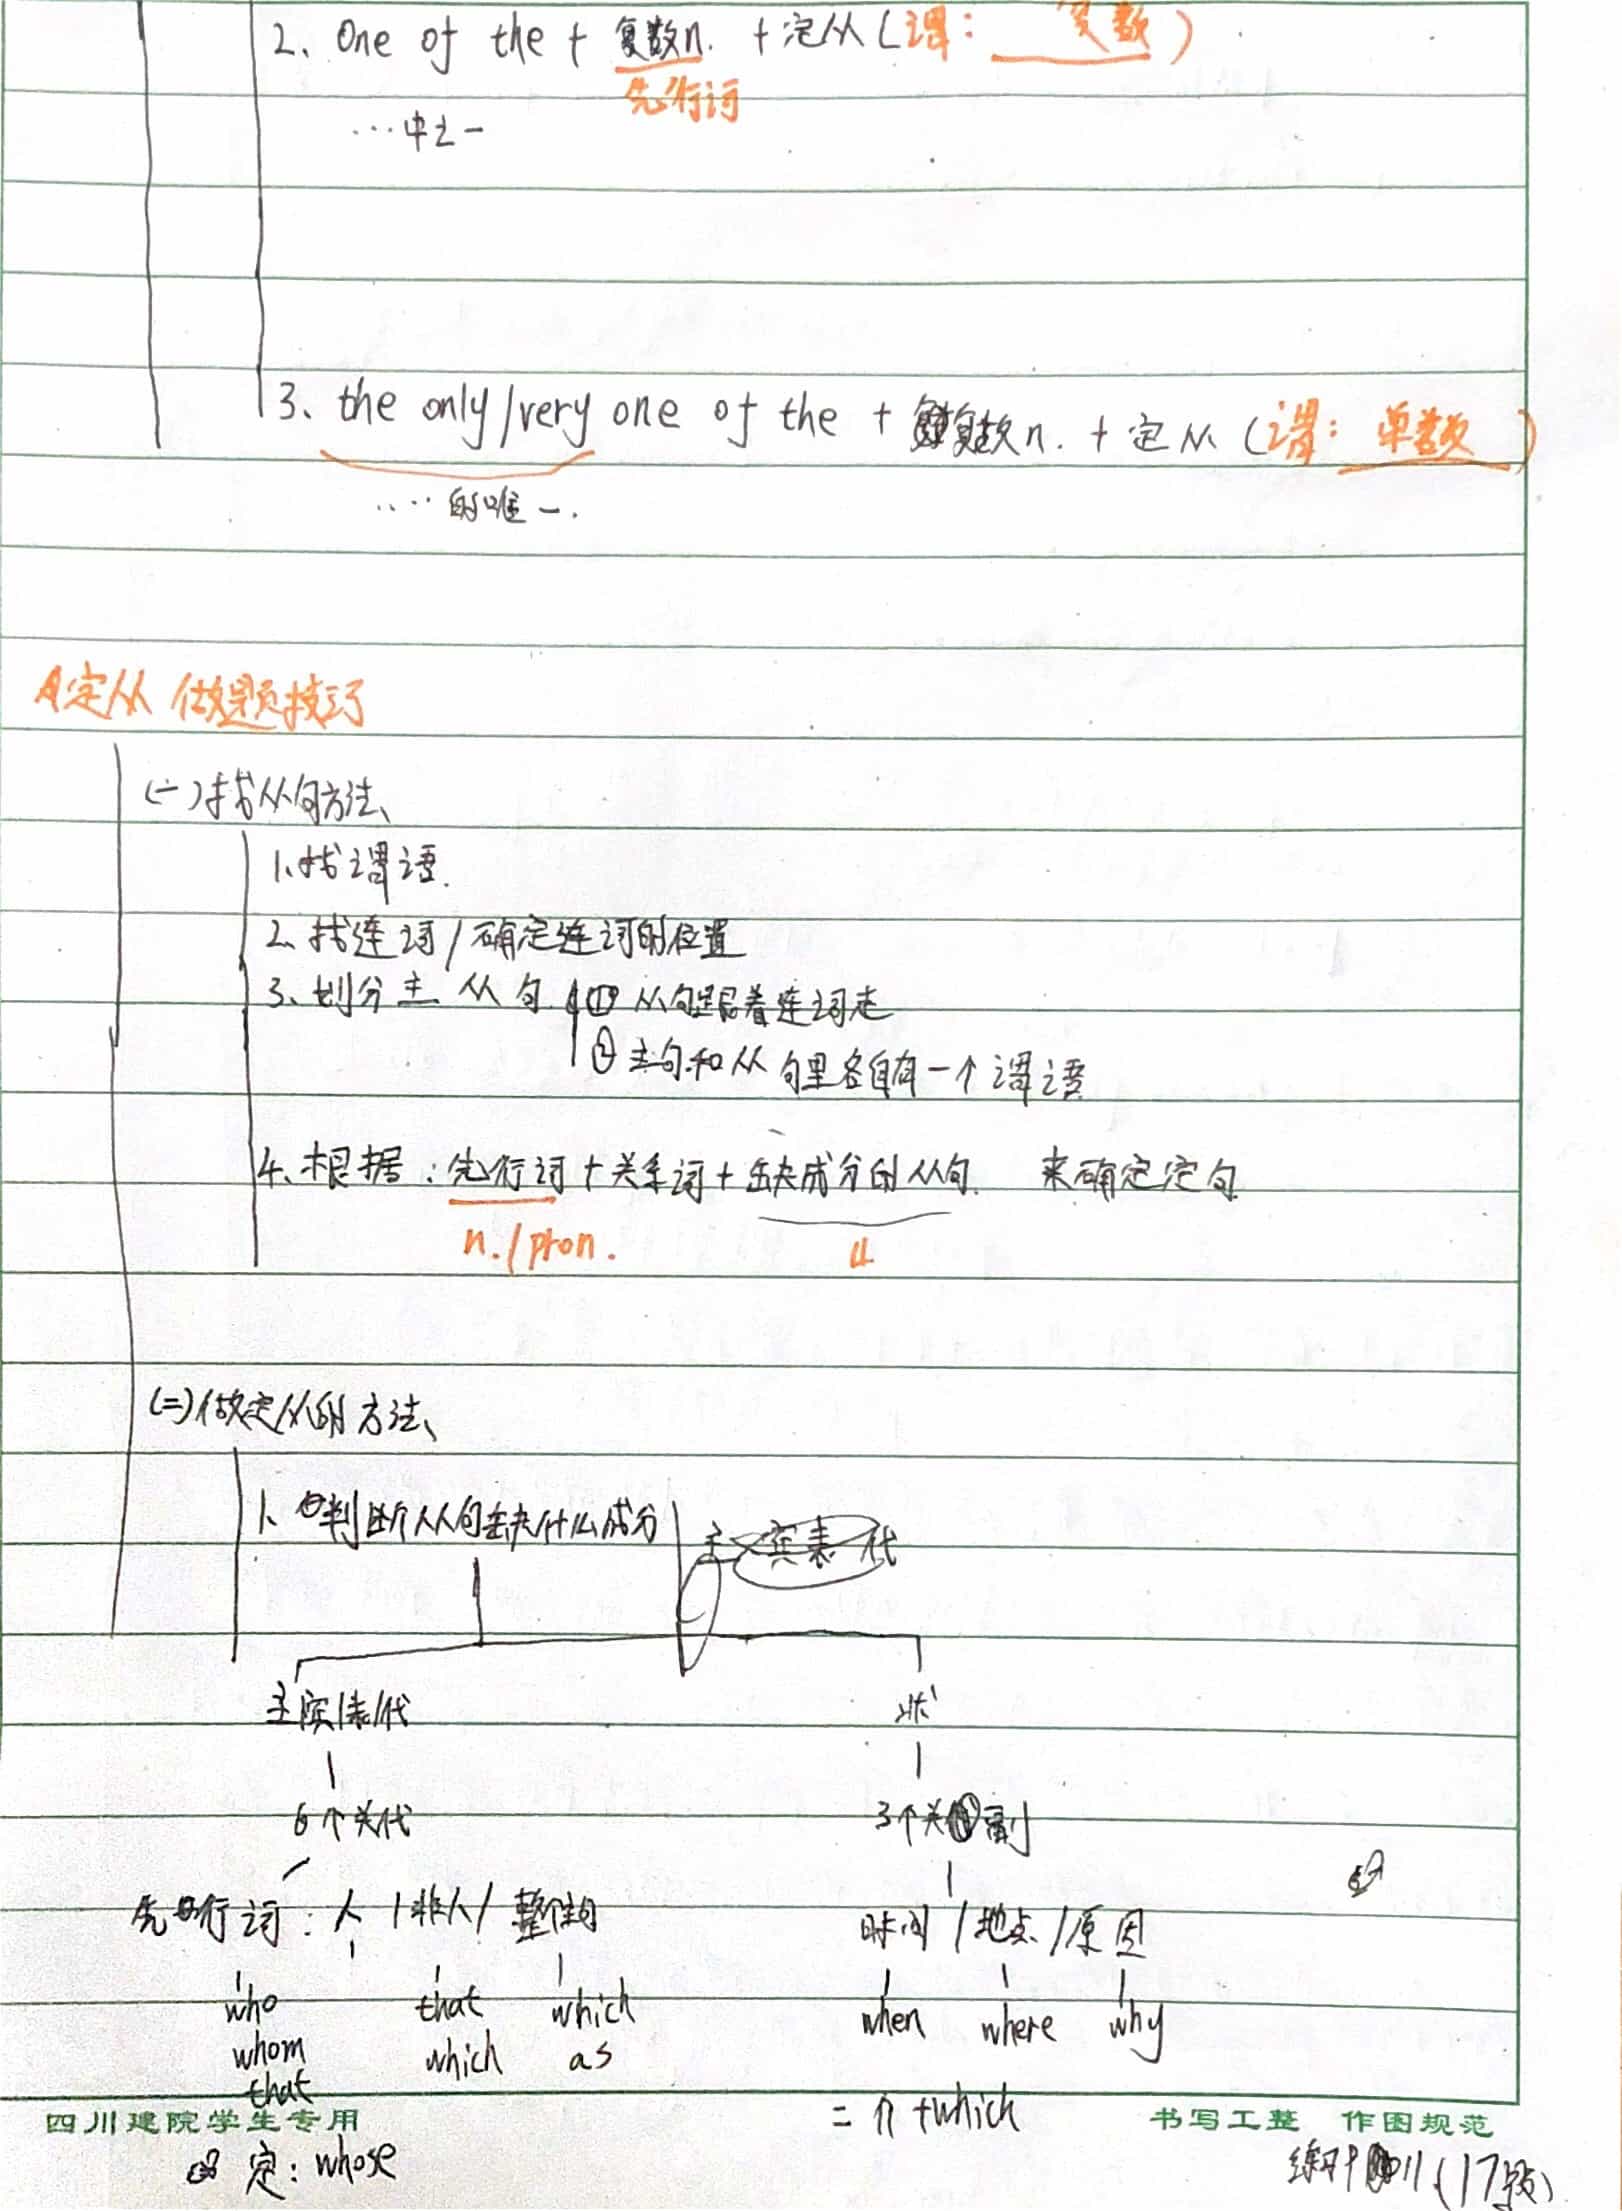 2、One of the + 复数n. + 定从(谓: 复数)
先行词
…中之一
3、the only/very one of the + 复数n. + 定从(谓: 单数)
……的唯一.
定从 做题技巧
(一)找从句方法、
1、找谓语.
2、找连词/确定连词的位置
3、划分主 从 句. ① 从句跟着连词走
② 主句和从 句里各自有一个谓语
4、根据:先行词+关系词+缺成分的从句. 来确定定句.
n./pron.
(二)做定从的方法、
1、判断从句缺什么成分
主 宾表 代
主/宾/表/代 状
6个关代 3个关副
先行词: 人 /非人/ 整个句 时间 /地点/原因
who that which when where why
whom which as
that
四川建院学生专用 = n+which 书写工整 作图规范
定: whose 练习 11 (17题)